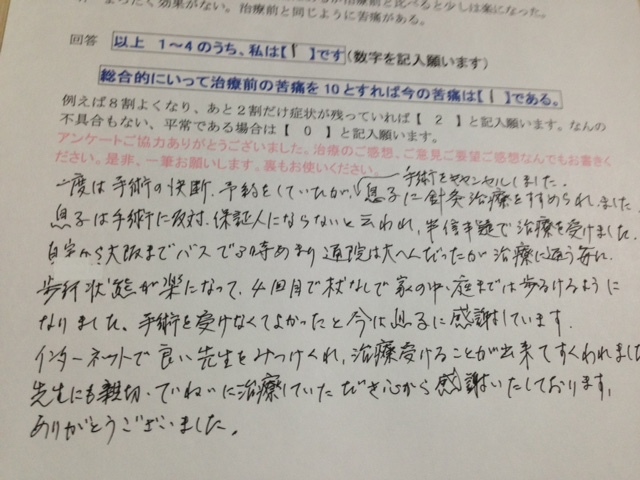 まったく効果がない。治療前と同じように苦痛がある。
回答 以上 1～4のうち、私は【 1 】です(数字を記入願います)
総合的にいって治療前の苦痛を10とすれば今の苦痛は【 1 】である。
例えば8割よくなり、あと2割だけ症状が残っていれば【 2 】と記入願います。なんの
不具合もない、平常である場合は【 0 】と記入願います。
アンケートご協力ありがとうございました。治療のご感想、ご意見ご要望ご感想なんでもお書きく
ださい。是非、一筆お願いします。裏もお使いください。
手術をキャンセルしました.
一度は手術の決断.予約をしていたが、息子に針灸治療をすすめられました.
息子は手術に反対.保証人にならないと云われ,半信半疑で治療を受けました.
自宅から大阪までバスで2時間あまり通院は大へんだったが治療に通う毎に
歩行状態が楽になって、4回目で杖なしで家の中、庭までは歩けるように
なりました、手術を受けなくてよかったと今は息子に感謝しています.
インターネットで良い先生をみつけくれ,治療受けることが出来てすくわれました
先生にも親切、ていねいに治療していただき心から感謝いたしております,
ありがとうございました。